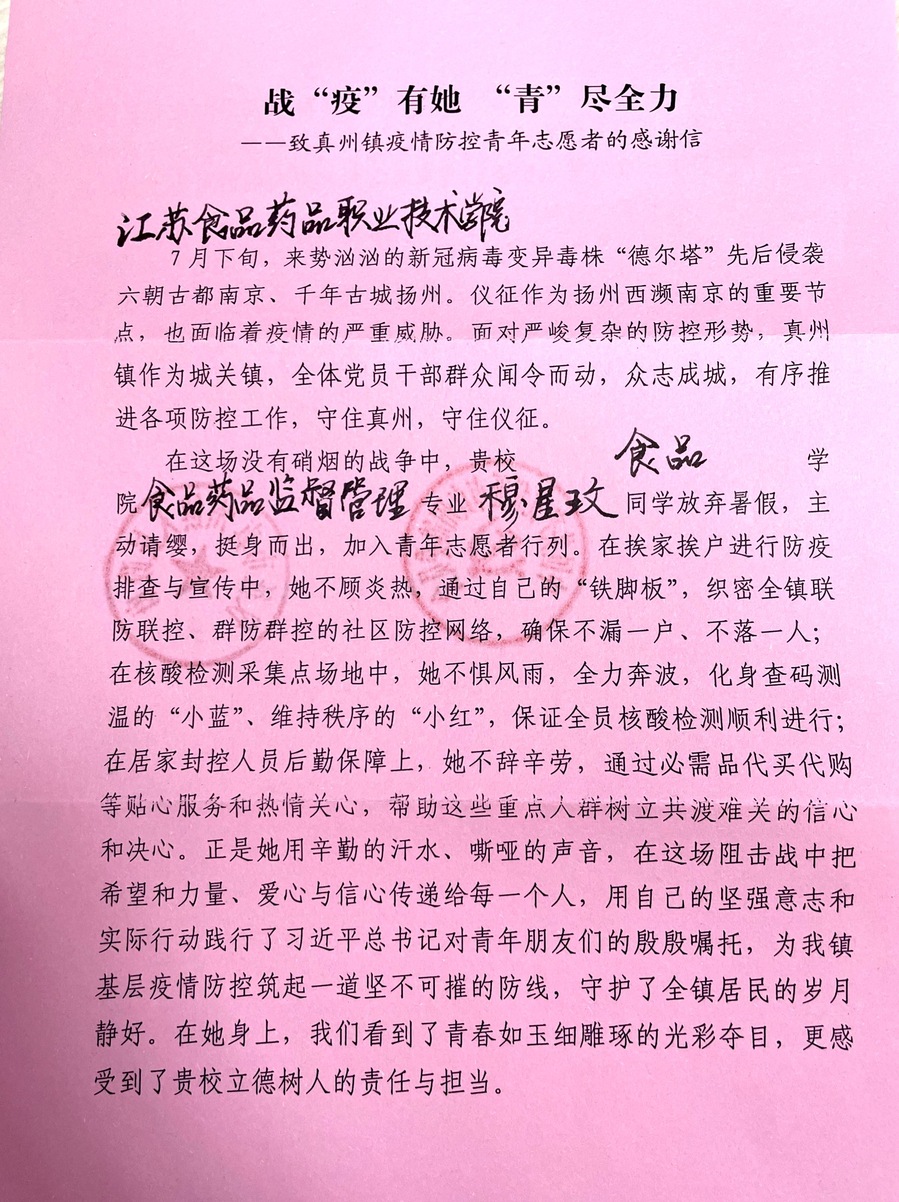 战“疫”有她 “青”尽全力
——致真州镇疫情防控青年志愿者的感谢信
江苏食品药品职业技术学院
7月下旬，来势汹汹的新冠病毒变异毒株“德尔塔”先后侵袭
六朝古都南京、千年古城扬州。仪征作为扬州西濒南京的重要节
点，也面临着疫情的严重威胁。面对严峻复杂的防控形势，真州
镇作为城关镇，全体党员干部群众闻令而动，众志成城，有序推
进各项防控工作，守住真州，守住仪征。
在这场没有硝烟的战争中，贵校 食品 学
院 食品药品监督管理 专业 穆星玫 同学放弃暑假，主
动请缨，挺身而出，加入青年志愿者行列。在挨家挨户进行防疫
排查与宣传中，她不顾炎热，通过自己的“铁脚板”，织密全镇联
防联控、群防群控的社区防控网络，确保不漏一户、不落一人；
在核酸检测采集点场地中，她不惧风雨，全力奔波，化身查码测
温的“小蓝”、维持秩序的“小红”，保证全员核酸检测顺利进行；
在居家封控人员后勤保障上，她不辞辛劳，通过必需品代买代购
等贴心服务和热情关心，帮助这些重点人群树立共渡难关的信心
和决心。正是她用辛勤的汗水、嘶哑的声音，在这场阻击战中把
希望和力量、爱心与信心传递给每一个人，用自己的坚强意志和
实际行动践行了习近平总书记对青年朋友们的殷殷嘱托，为我镇
基层疫情防控筑起一道坚不可摧的防线，守护了全镇居民的岁月
静好。在她身上，我们看到了青春如玉细雕琢的光彩夺目，更感
受到了贵校立德树人的责任与担当。